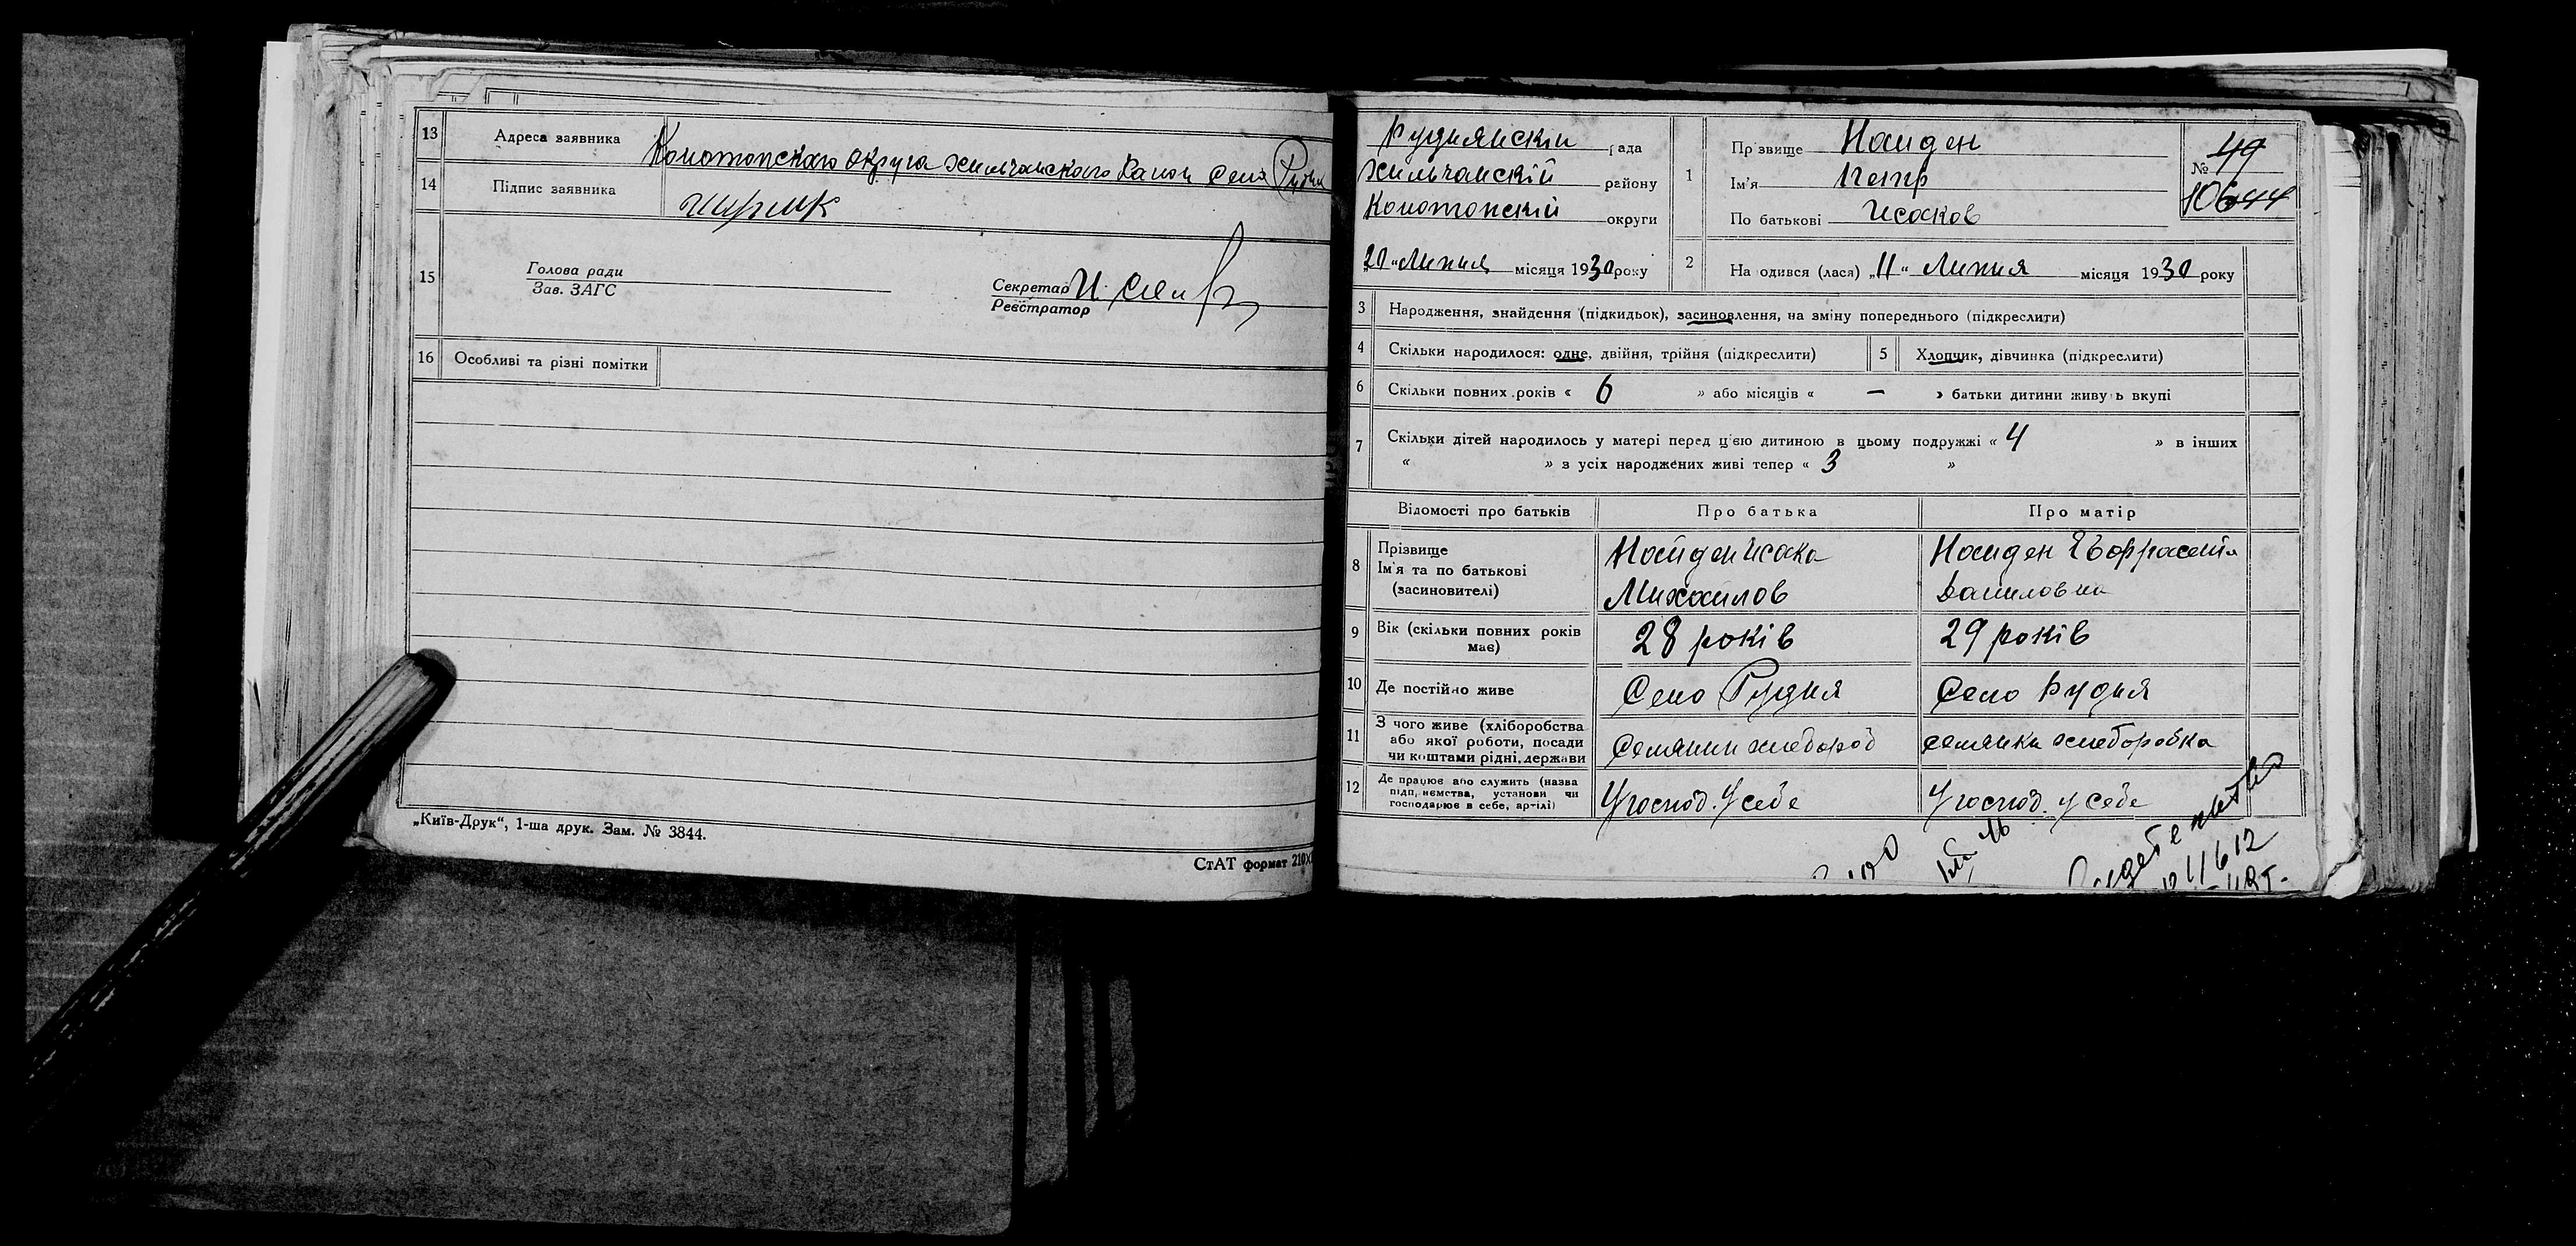 13 Адреса заявника Конотопскаго округа Хильчанского Раион Село Рудня
14 Підпис заявника
15 Голова ради
Зав. ЗАГС
Секретар
Реєстратор
16 Особливі та різні помітки
„Київ-Друк“, 1-ша друк. Зам. № 3844.
СтАТ формат 210Х
Руднянскій рада
Хильчанскій району
Конотопскій округи
20 „ Липня місяця 1930 року
1 Прізвище Найден
Ім'я Петр
По батькові Исаков
№ 49
106
2 На одився (лася) „11“ Липня місяця 1930 року
3 Народження, знайдення (підкидьок), засиновлення, на зміну попереднього (підкреслити)
4 Скільки народилося: одне, двійня, трійня (підкреслити)
5 Хлопчик, дівчинка (підкреслити)
6 Скільки повних років « 6 » або місяців « — » батьки дитини живуть вкупі
7 Скільки дітей народилось у матері перед цією дитиною в цьому подружжі « 4 » в інших
« » з усіх народжених живі тепер « 3 »
Відомості про батьків Про батька Про матір
8 Прізвище
Ім'я та по батькові
(засиновителі)
Найден Исака
Михаилов
Найден
Даниловна
9 Вік (скільки повних років
має)
28 років
29 років
10 Де постійно живе Село Рудня Село Рудня
11 З чого живе (хліборобства
або якої роботи, посади
чи коштами рідні, держави
Селянин хлебороб
селянка хлеборобка
12 Де працює або служить (назва
підприємства, установи чи
господарює в себе, артілі)
У господ. у себе
У господ. у себе